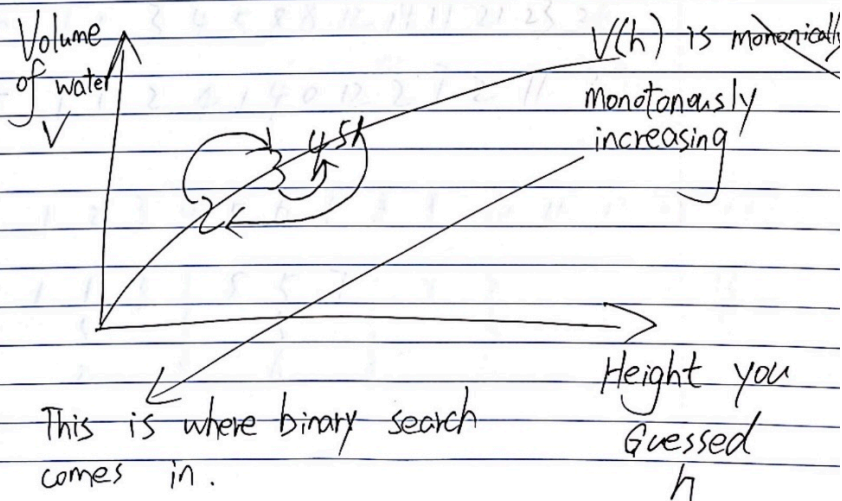 Volume
of water
V
V(h) is
monotonously
increasing
Height you
Guessed
h
This is where binary search
comes in.